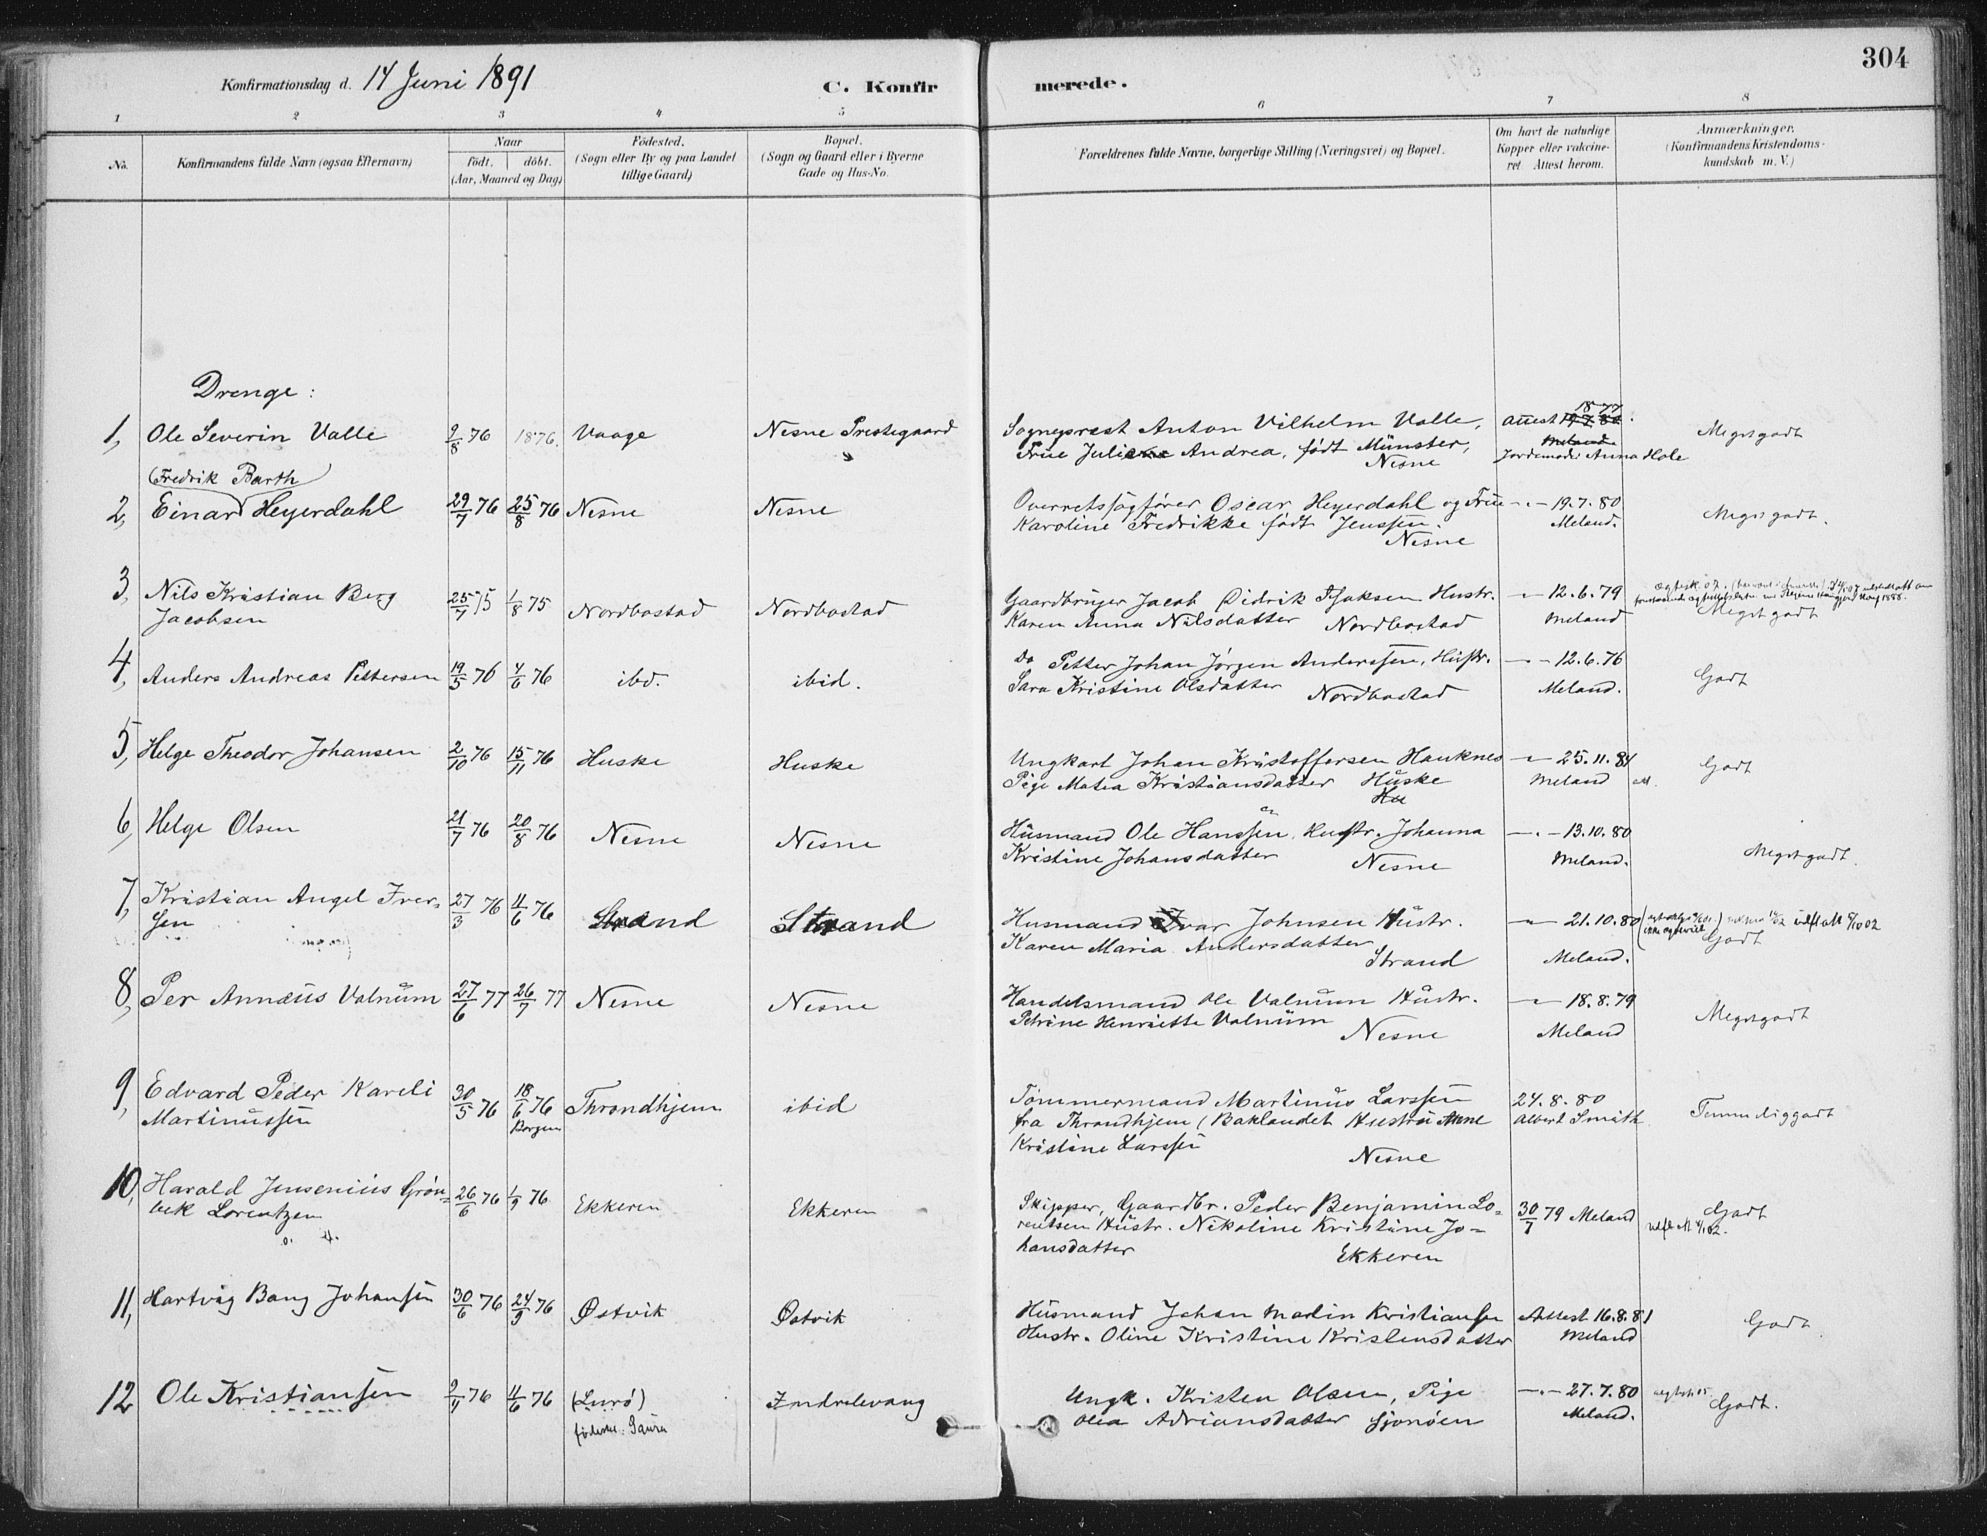 304
Konfirmationsdag d. 14 Juni 1891
C. Konfirmerede.
1 2 3 4 5 6 7 8
No.
Konfirmandens fulde Navn (ogsaa Efternavn)
Naar
födt. döbt.
(Aar, Maaned og Dag)
Födested.
(Sogn eller By og paa Landet
tillige Gaard)
Bopæl.
(Sogn og Gaard eller i Byerne
Gade og Hus-No.
Forældrenes fulde Navne, borgerlige Stilling (Næringsvei) og Bopæl.
Om havt de naturlige
Kopper eller vakcine-
ret. Attest herom.
Anmærkninger.
(Konfirmandens Kristendoms-
kundskab m. V.)
Drenge:
1, Ole Severin Valle 2/8 76 1876. Vaage Nesne Prestegaard
Sogneprest Anton Vilhelm Valle,
Frue Juliane Andrea, født Münster,
Nesne
Attest 1877
Meland
Jordemoder Anna Hole
Megetgodt
(Fredrik Barth)
2, Einar Heyerdahl 29/7 76 25/8 76 Nesne Nesne
Overretssagfører Oscar Heyerdahl og Frue
Karoline Fredrikke født Jenssen.
Nesne
-"- 19.7.80
Meland.
Megetgodt.
3, Nils Kristian Berg
Jacobsen
25/7 75 1/8 75 Nordbostad Nordbostad
Gaardbruger Jacob Didrik Isaksen Hustr.
Karen Anna Nilsdatter Nordbostad
-"- 12.6.79
Meland
Megetgodt
4, Anders Andreas Pettersen 19/5 76 4/6 76 ibd. ibid.
Do Petter Johan Jørgen Anderssen, Hustr.
Sara Kristine Olsdatter Nordbostad
-"- 12.6.76
Meland.
Godt
5, Helge Theodor Johansen 2/10 76 15/11 76 Huske Huske
Ungkarl Johan Kristoffersen Hauknes
Pige Matea Kristiansdatter Huske
-"- 25.11.84
Meland
Godt
6, Helge Olsen 21/7 76 20/8 76 Nesne Nesne
Husmand Ole Hanssen, Hustr. Johanna
Kristine Johansdatter Nesne
-"- 13.10.80
Meland.
Megetgodt.
7, Kristian Angel Iver-
sen
27/3 76 4/6 76 Strand Strand
Husmand Ivar Johnsen Hustr.
Karen Maria Andersdatter
Strand
-"- 21.10.80
Meland.
Godt
8, Per Annæus Valnum 27/6 77 26/7 77 Nesne Nesne
Handelsmand Ole Valnum Hustr.
Petrine Henriette Valnum
Nesne
-"- 18.8.79
Meland
Megetgodt
9, Edvard Peder Kareli
Martinussen
30/5 76 18/6 76 Throndhjem ibid
Tømmermand Martinus Larssen
fra Throndhjem (Baklandet Hustru Anne
Kristine Larssen
Nesne
24.8.80
Albert Smith
Temmeliggodt
10, Harald Jensenius Grøn-
bek Lorentzen
26/6 76 1/9 76 Ekkeren Ekkeren
Skipper, Gaardbr. Peder Benjamin Lo-
rentsen Hustr. Nikoline Kristine Jo-
hansdatter
Ekkeren
30/7 79 Meland
Godt
11, Hartvig Bang Johansen 30/6 76 24/9 76 Østvik Østvik
Husmand Johan Martin Kristiansen
Hustr. Oline Kristine Kristensdatter
Attest 16.8.81
Meland
Godt
12 Ole Kristiansen 2/4 76 4/6 76 (Lurø) Zndrelevang
Ungk. Kristen Olsen, Pige
Olea Adriansdatter Sjonøen
-"- 27.7.80
Meland.
Godt.